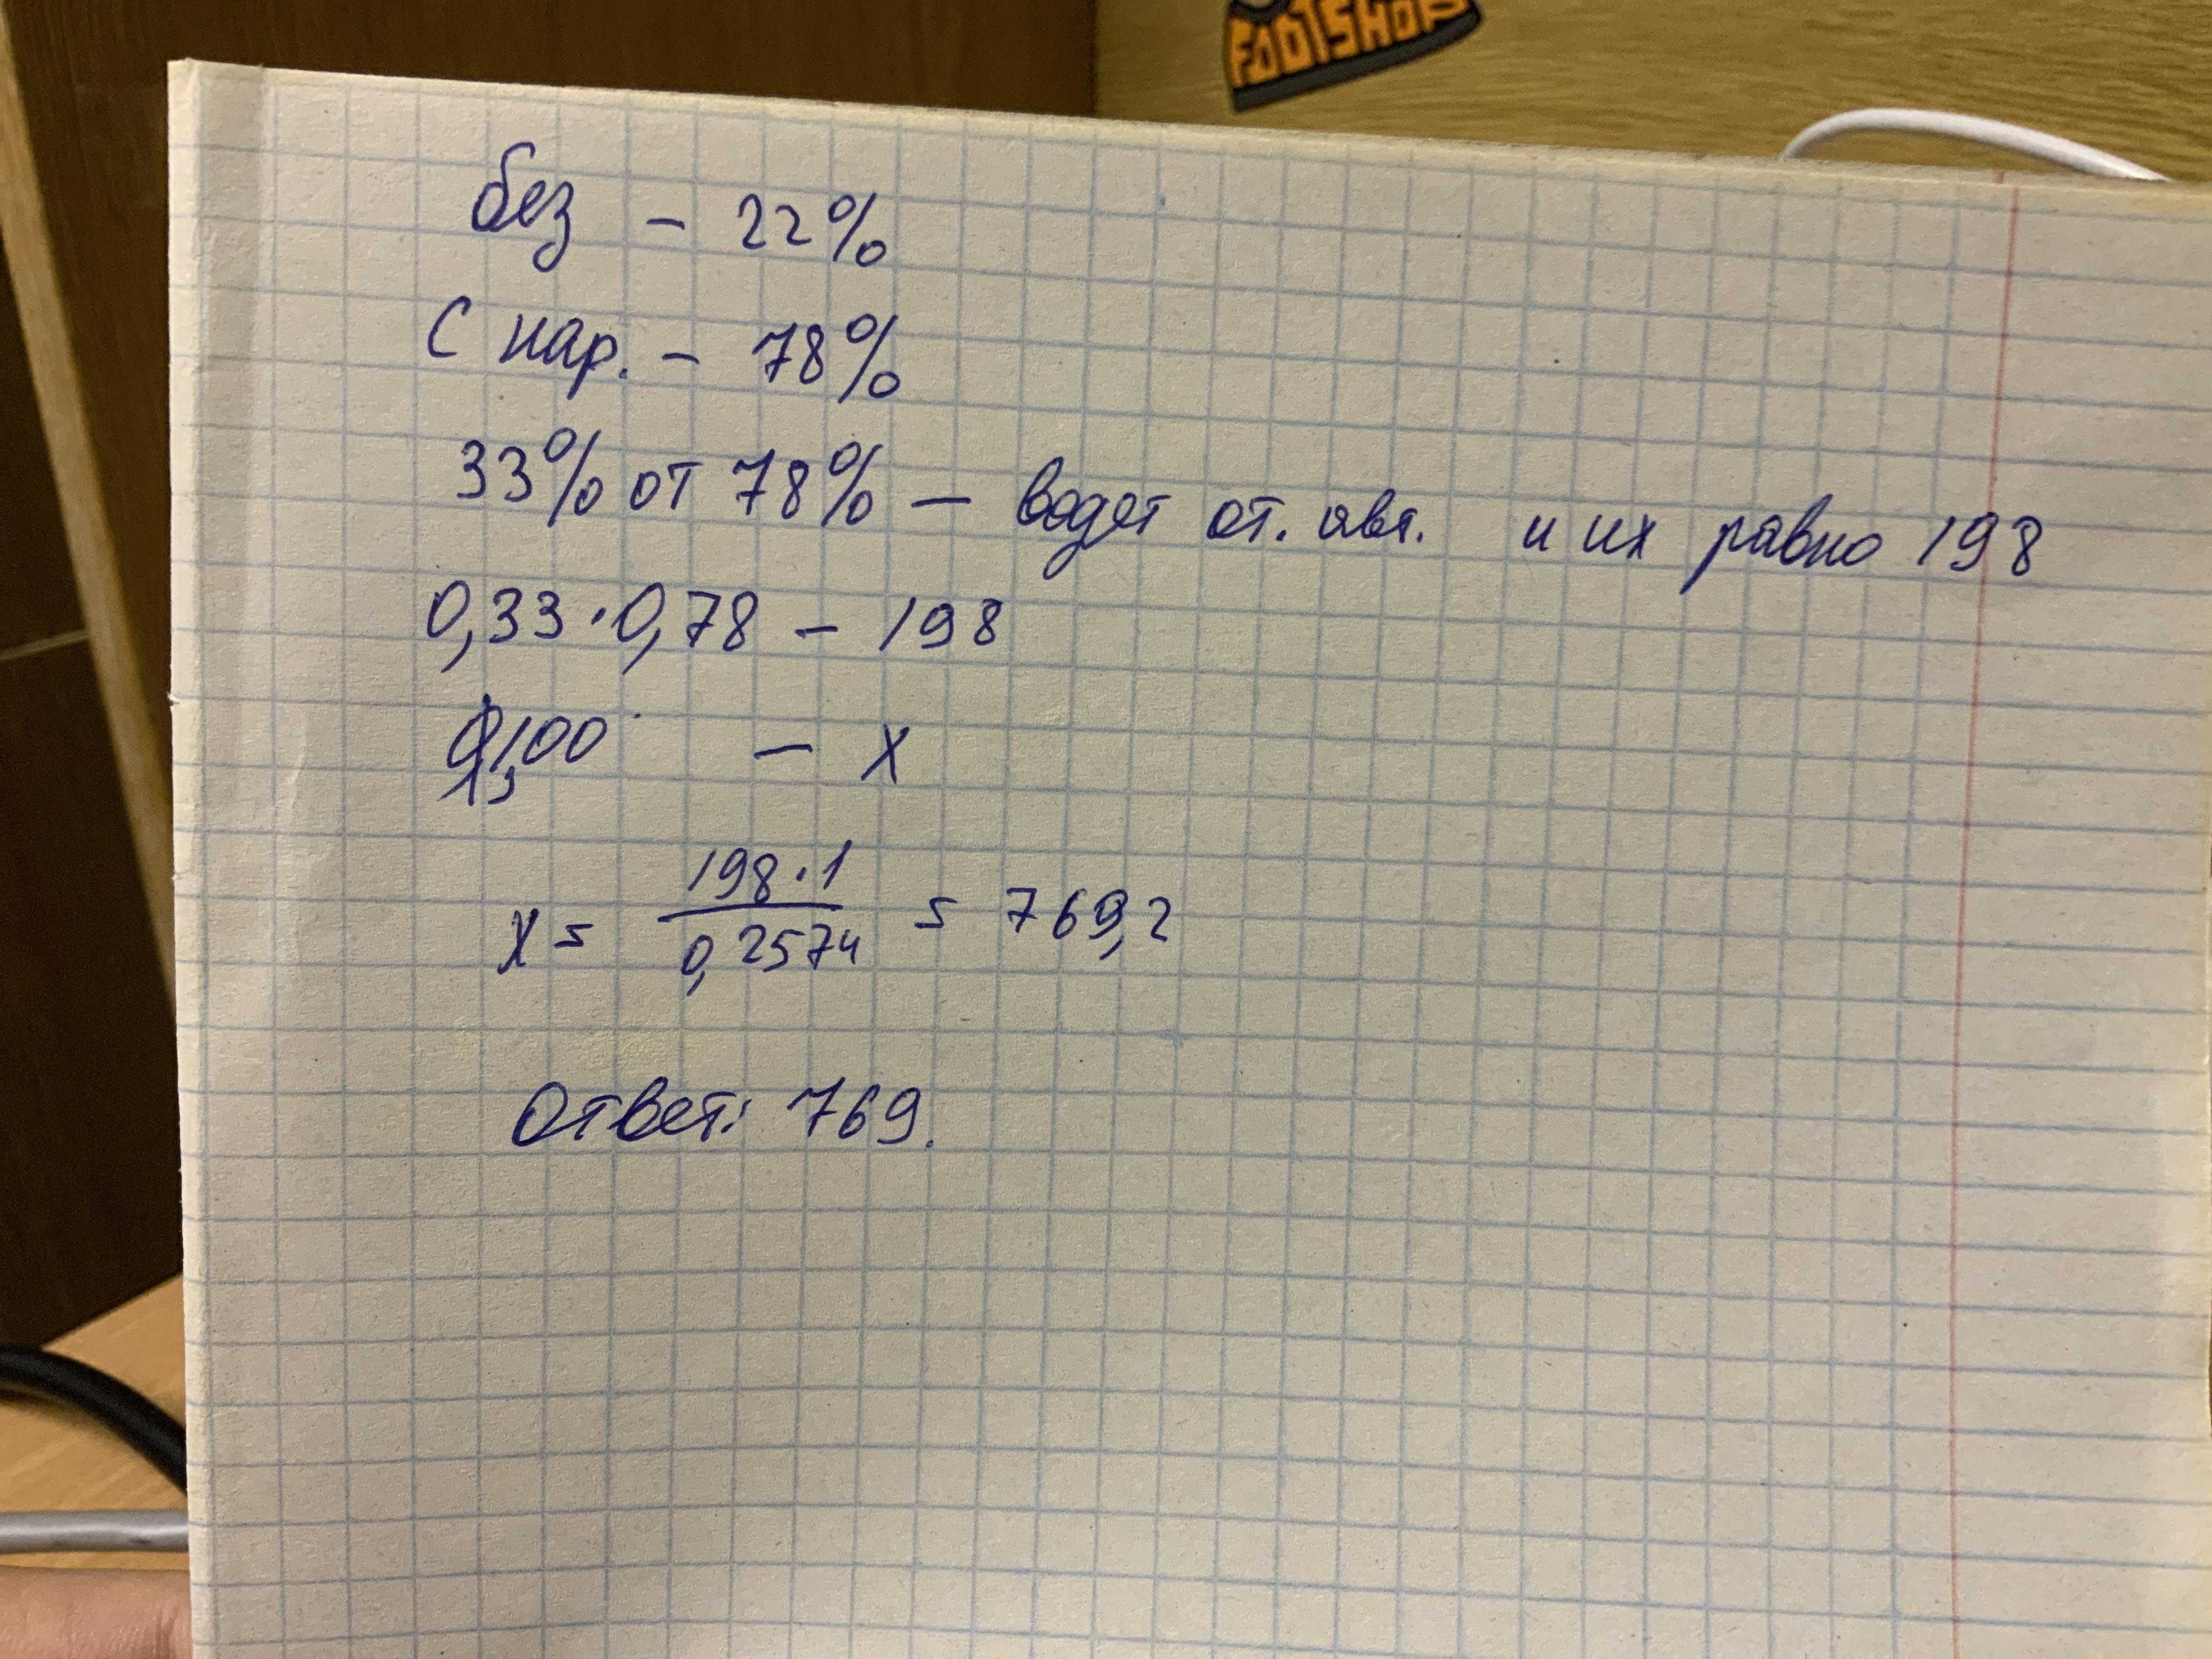 FOOTSHOP
без – 22%
С нар. – 78%
33% от 78% – водят от. авт. и их равно 198
0,33·0,78 – 198
1,00 – x
x = 198·1 / 0,2574 = 769,2
Ответ: 769.